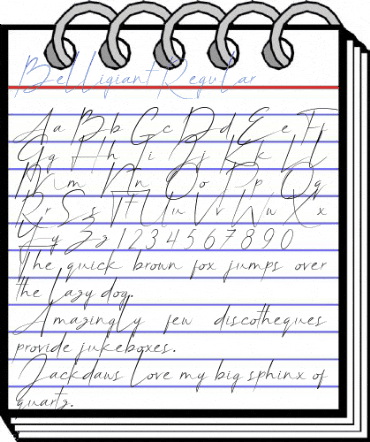 Belligiant Regular
A a B b C c D d E e F f
G g H h I i J j K k L l
M m N n O o P p Q q
R r S s T t U u V v W w X x
Y y Z z 1 2 3 4 5 6 7 8 9 0
The quick brown fox jumps over
the lazy dog.
Amazingly few discotheques
provide jukeboxes.
Jackdaws love my big sphinx of
quartz.